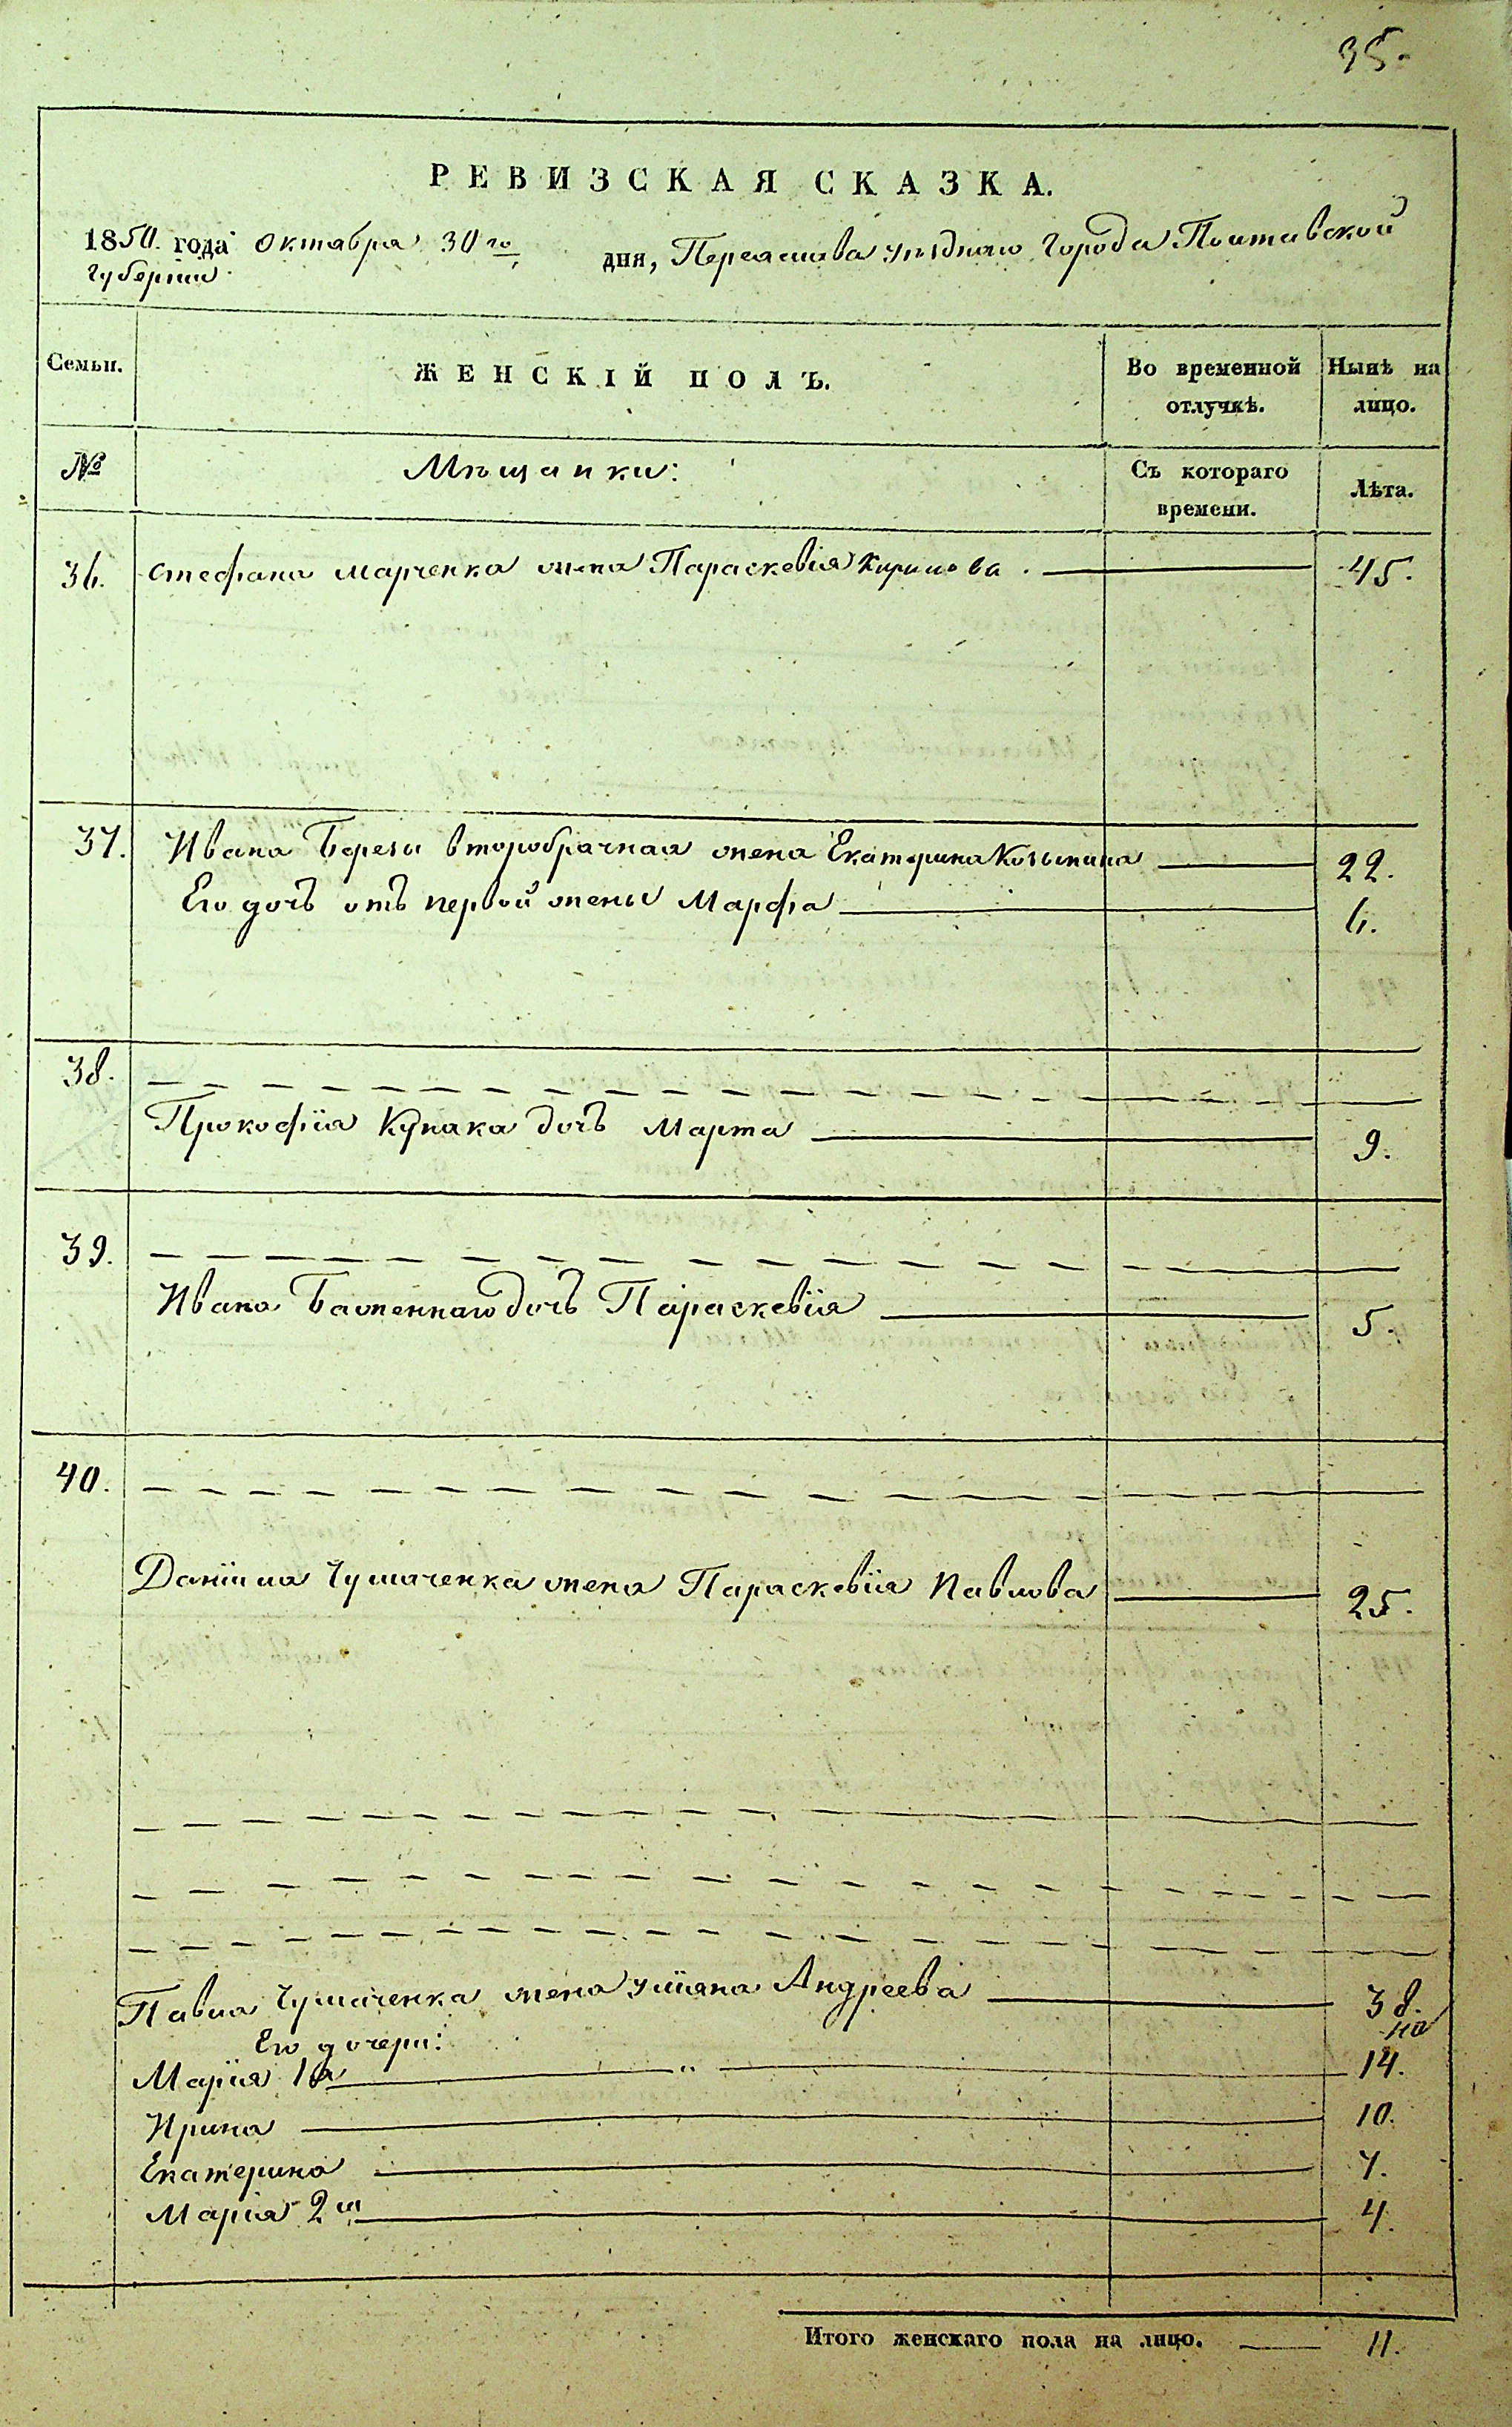 35.
РЕВИЗСКАЯ СКАЗКА.
1850. года октября 30го дня, Переяслава уѣзднаго города Полтавской
губерніи.
Семьи.
ЖЕНСКІЙ ПОЛЪ.
Во временной отлучкѣ.
Нынѣ на лицо.
№
Мѣщанки:
Съ котораго времени.
Лѣта.
36. Стефана Марченка жена Параскевія Кирилова. 45.
37. Ивана Березы второбрачная жена Екатерина 22.
Его дочь отъ первой жены Марфа 6.
38.
Прокофія Кулака дочь Марта 9.
39.
Ивана Баженнаго дочь Параскевія 5.
40.
Даніила Чумаченка жена Параскевія Павлова 25.
Павла Чумаченка жена Уліяна Андреева 38.
Его дочери:
Марія 1я 14.
Ирина 10.
Екатерина 7.
Марія 2я 4.
Итого женскаго пола на лицо. 11.